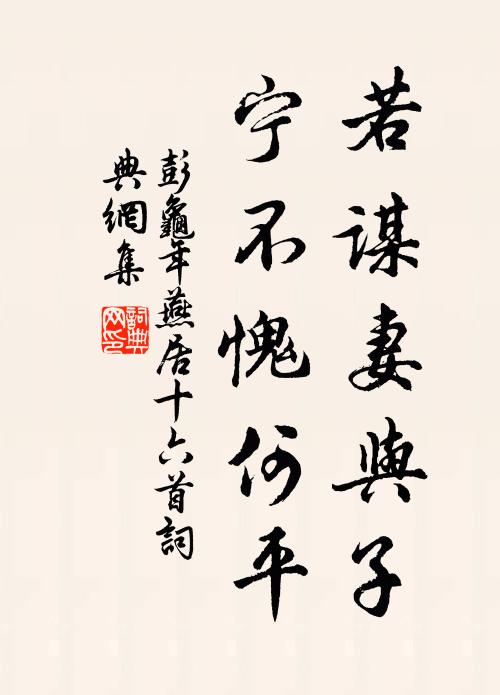 若谋妻與子
宁不愧何平
彭龜年燕居十六首詞
典網集
詞典
网印